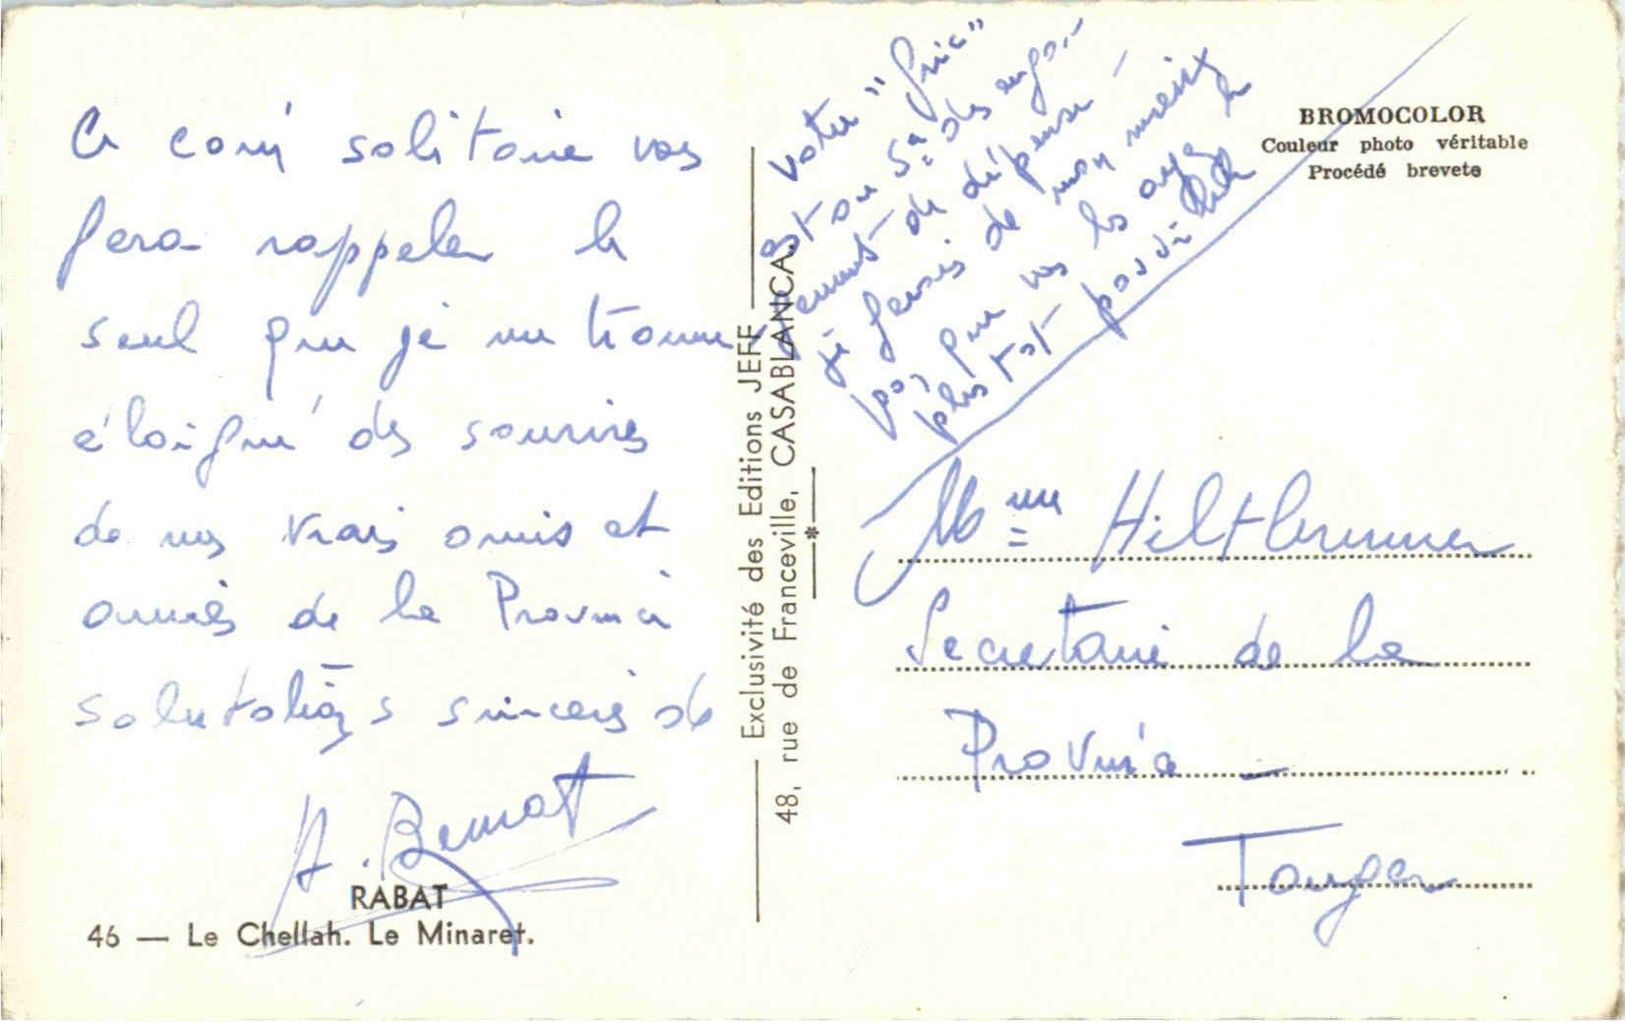 Ce coin solitaire vous
fera rappeler le
seul que je me trouve
éloigné des sourires
de mes vrais amis et
amies de la Province
salutations sincères de
A. Bennat
RABAT
46 — Le Chellah. Le Minaret.
Exclusivité des Editions JEFF
48, rue de Franceville, CASABLANCA.
votre "fric"
est au S.ce des
de dépense
je ferais de mon mieux
pour que vous les ayez le
plus tôt possible
BROMOCOLOR
Couleur photo véritable
Procédé brevete
Mme Hiltbrunner
Secretaire de la
Province –
Tanger